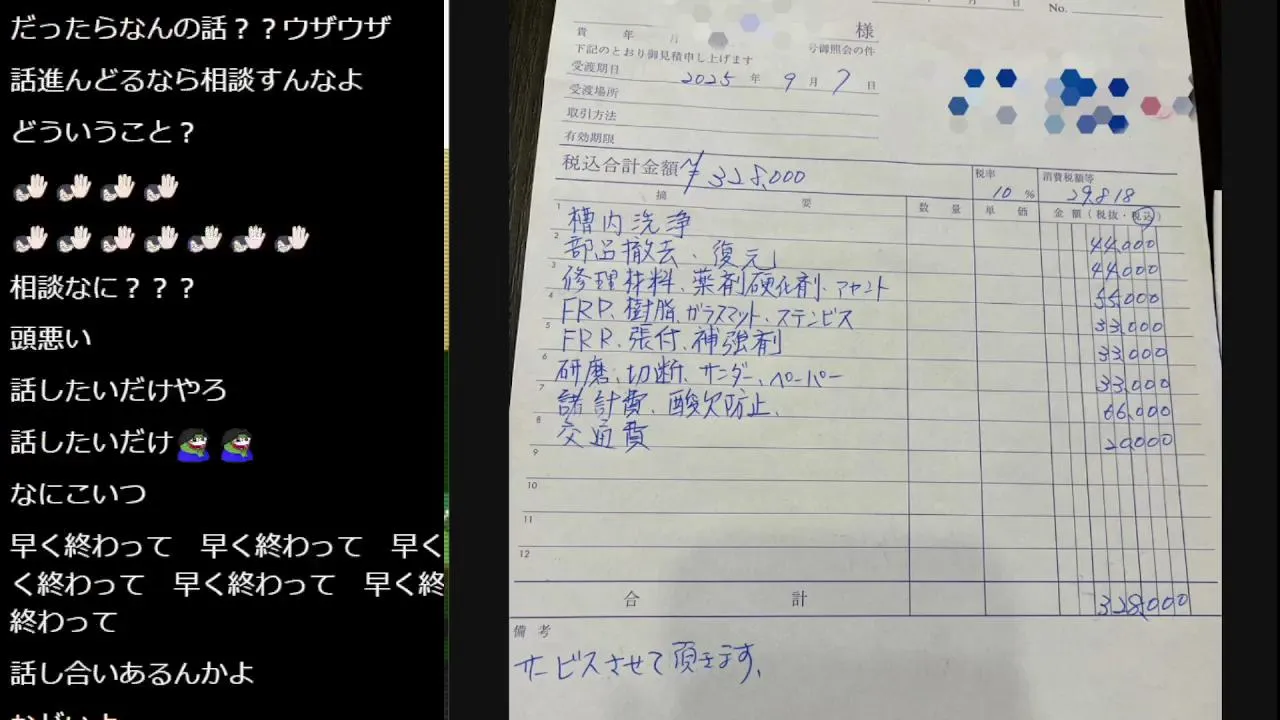 だったらなんの話？？ウザウザ
話進んどるなら相談すんなよ
どういうこと？
相談なに？？？
頭悪い
話したいだけやろ
話したいだけ
なにこいつ
早く終わって　早く終わって　早く
く終わって　早く終わって　早く終
終わって
話し合いあるんかよ
月 日 No.
様
貴 年 月 号御照会の件
下記のとおり御見積申し上げます
受渡期日 2025 年 9 月 7 日
受渡場所
取引方法
有効期限
税込合計金額 ¥328,000 税率 10 % 消費税額等 29,818
摘 要 数 量 単 価 金 額 (税抜・税込)
1 槽内洗浄 44,000
2 部品撤去、復元 44,000
3 修理材料、薬剤硬化剤、アセント 55,000
4 FRP、樹脂、ガラスマット、ステンビス 33,000
5 FRP、張付、補強剤 33,000
6 研磨、切断、サンダー、ペーパー 33,000
7 諸計費、酸欠防止、 66,000
8 交通費 20,000
9
10
11
12
合 計 328,000
備 考
サービスさせて頂きます、